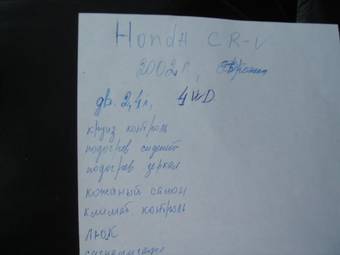 Honda CR-V
2002г,
дв. 2,4л, 4WD
круиз контроль
подогрев сидений
подогрев зеркал
кожаный салон
климат контроль
люк
сигнализация